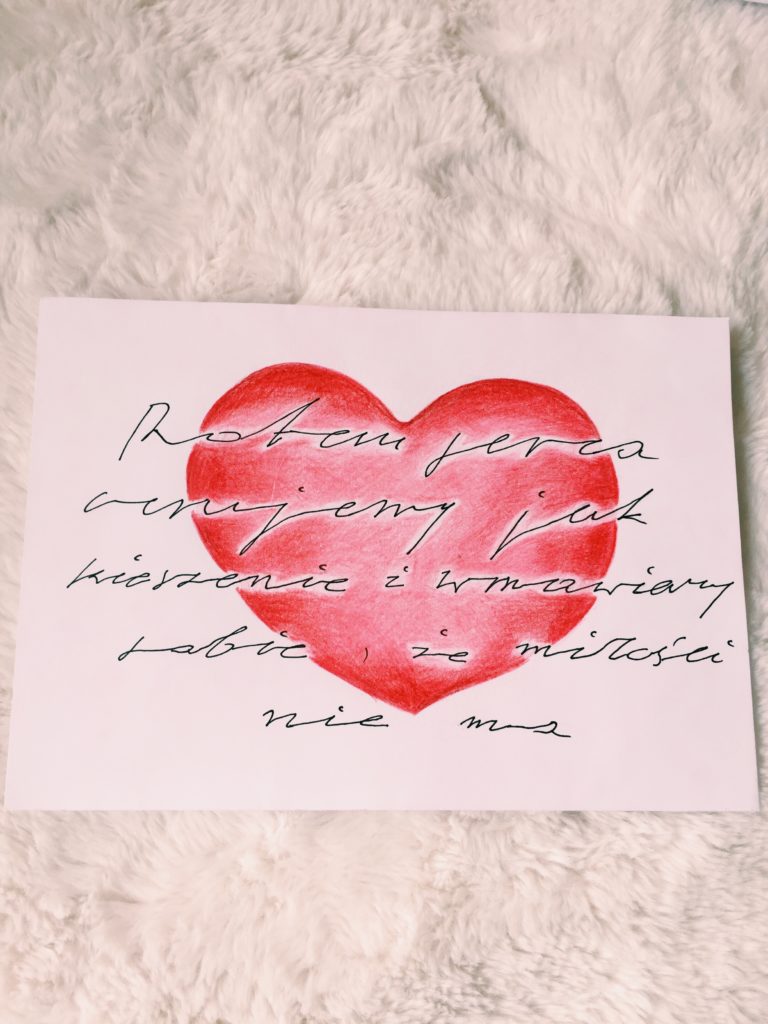 Potem serca
cerujemy jak
kieszenie i wmawiamy
sobie, że miłości
nie ma